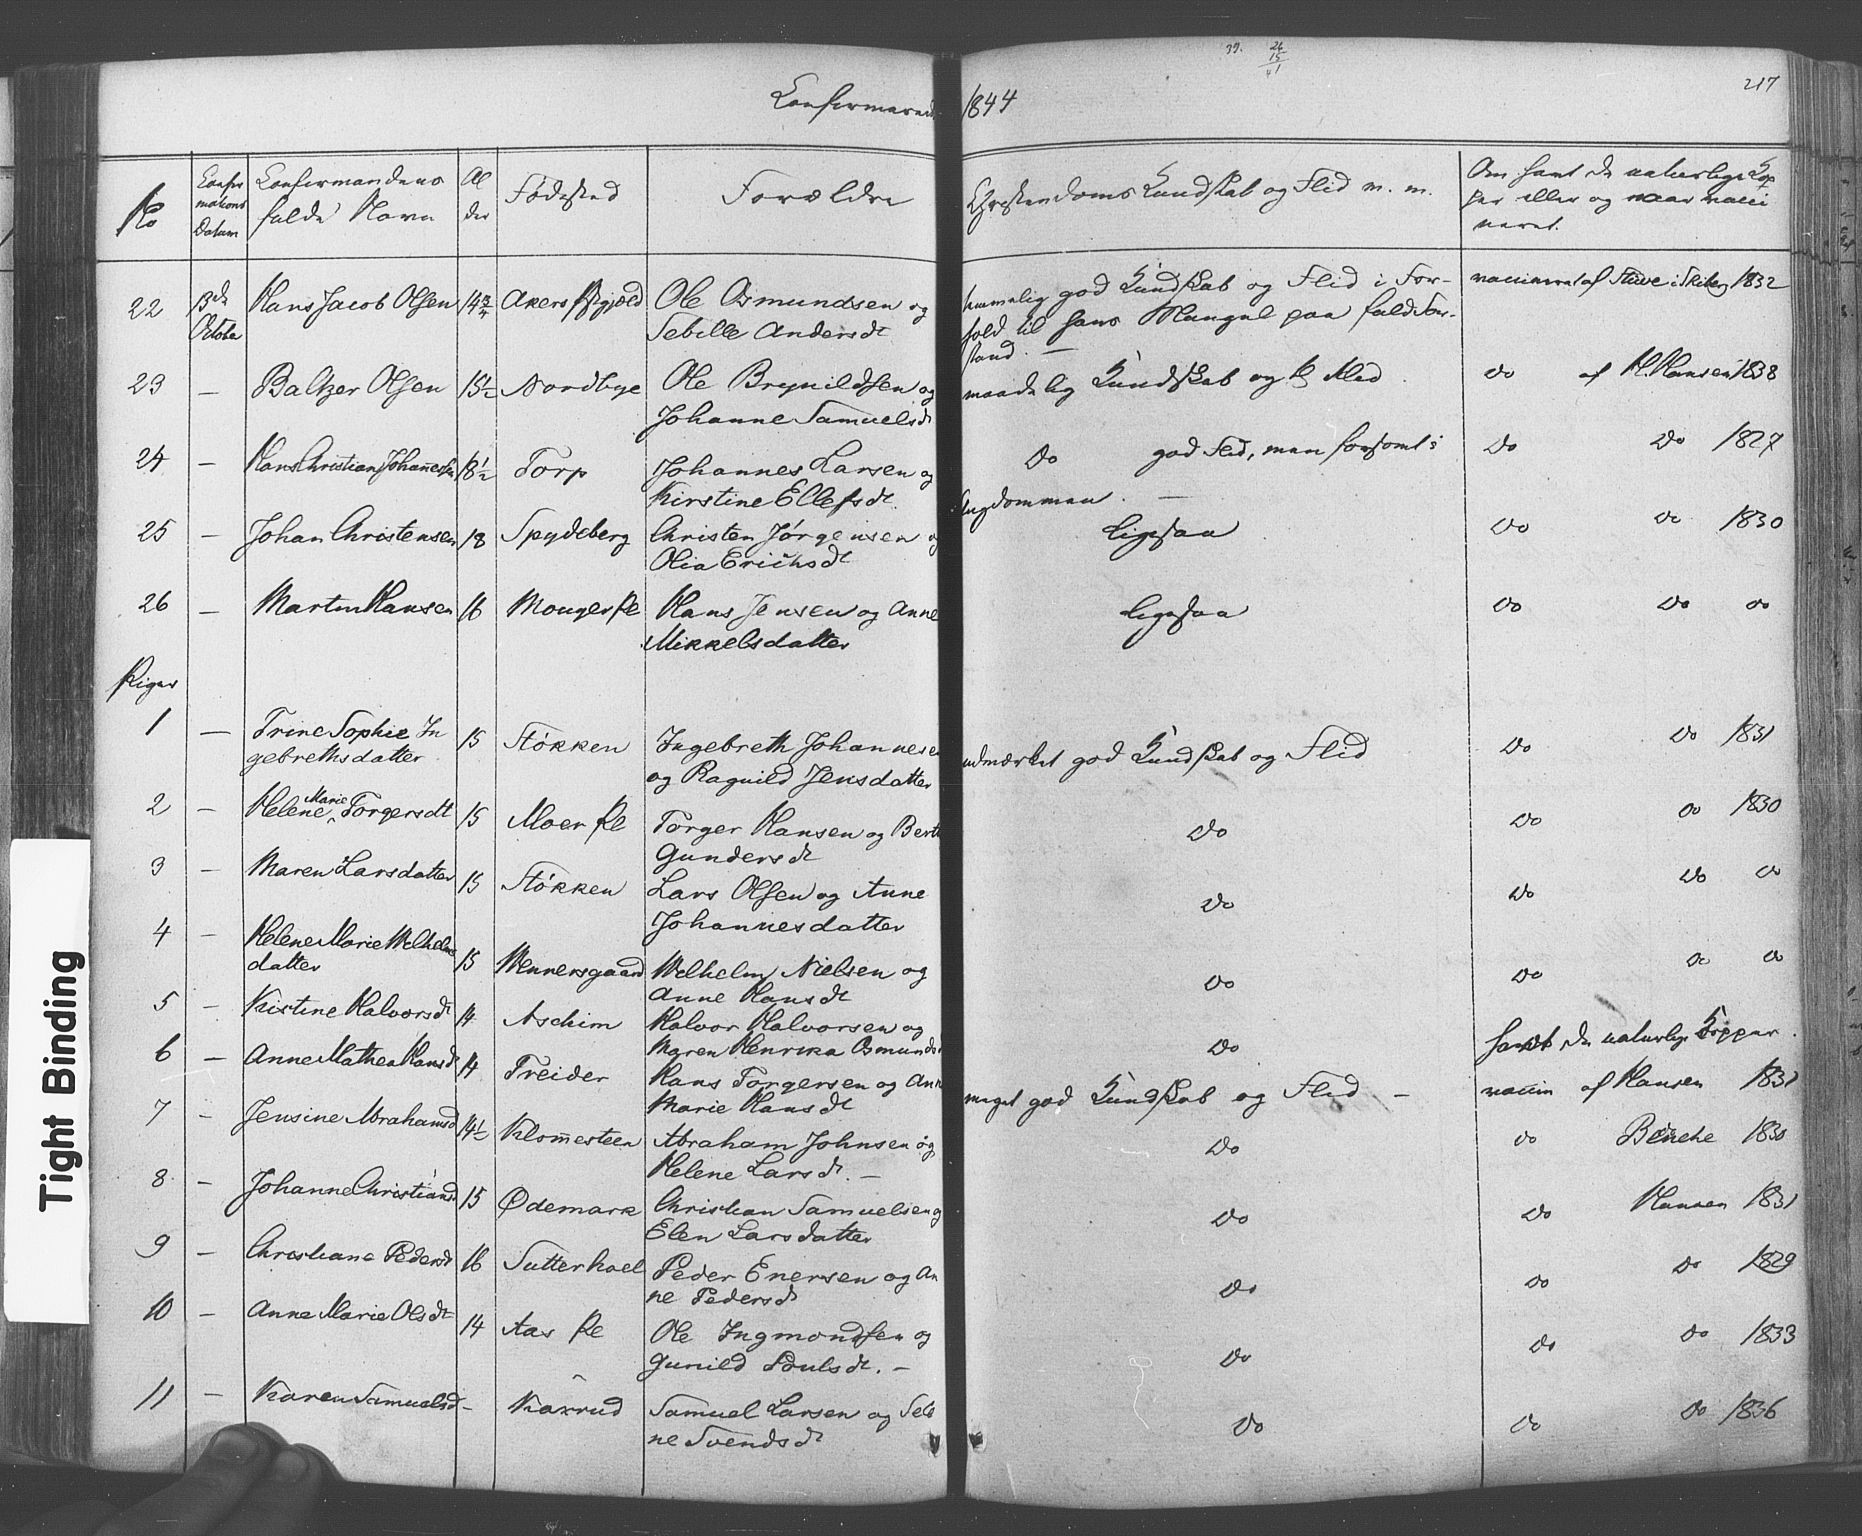 Confirmerede 1844
39. 26
15
41
217
No
Confir
mations
Datum
Confirmandens
fulde Navn
Al
der
Fødested
Forældre
Christendoms Kundskab og Flid m. m.
Om havt de naturlige Kop
per eller og naar vacci
neret.
22 3die October Hans Jacob Olsen 14 Ole Osmundsen og
Sebille Andersdt
temmelig god Kundskab og Flid i For-
hold til hans Mangel paa fuld For-
stand. —
vaccineret af Stuve i Skiberg 1832
23 — Baltzer Olsen 15½ Nordbye Ole Brynildsen og
Johanne Samuelsdt
maadelig Kundskab og Flid
do af H. Hansen 1838
24 — Hans Christian Johannesen 18½ Torp Johannes Larsen og
Kirstine Ellefsdt
Do god Flid, men forsømt i
Ungdommen. —
do do 1827
25 — Johan Christensen 18 Spydeberg Christen Jørgensen og
Olia Erichsdt
Ligesaa
do do 1830
26 — Martin Hansen 16 Hans Jensen og Anne
Mikkelsdatter
Ligesaa
do do do
Piger
1 — Trine Sophie In
gebrethsdatter 15 Støkken Ingebreth Johannesen
og Ragnild Jensdatter
udmærket god Kundskab og Flid
do do 1831
2 — Helene Marie Torgersdt 15 Moer Torger Hansen og Berthe
Gundersdt
do
do do 1830
3 — Maren Larsdatter 15 Støkken Lars Olsen og Anne
Johannesdatter
do
do do do
4 — Helene Marie Wilhelms
datter 15 Wennersgaard Wilhelm Nielsen og
Anne Hansdt
do
do do do
5 — Kistine Halvorsdt 14 Aschim Halvor Halvorsen og
Maren Henrika Osmundsd
do
havt de naturlige Kopper.
6 — Anne Mathea Hansd 14 Treider Hans Torgersen og Anne
Marie Hansdt
meget god Kundskab og Flid —
vaccin af Hansen 1831
7 — Jensine Abrahamsd 14½ Klommesteen Abraham Johnsen og
Helene Larsdt. —
do
do 1830
8 — Johanne Christiansd 15 Ødemark Christian Samuelsen og
Elen Larsdatter
do
do Hansen 1831
9 — Christiane Pedersdt 16 Sutterhoel Peder Enersen og An
ne Pedersdt
do
do do 1829
10 — Anne Marie Olsdt 14 Aas Ole Ingmondsen og
Gunild Poulsdt. —
do
do do 1833
11 — Karen Samuelsd — Kaxrud Samuel Larsen og Sele
ne Svendsdt
do
do do 1836
Tight Binding